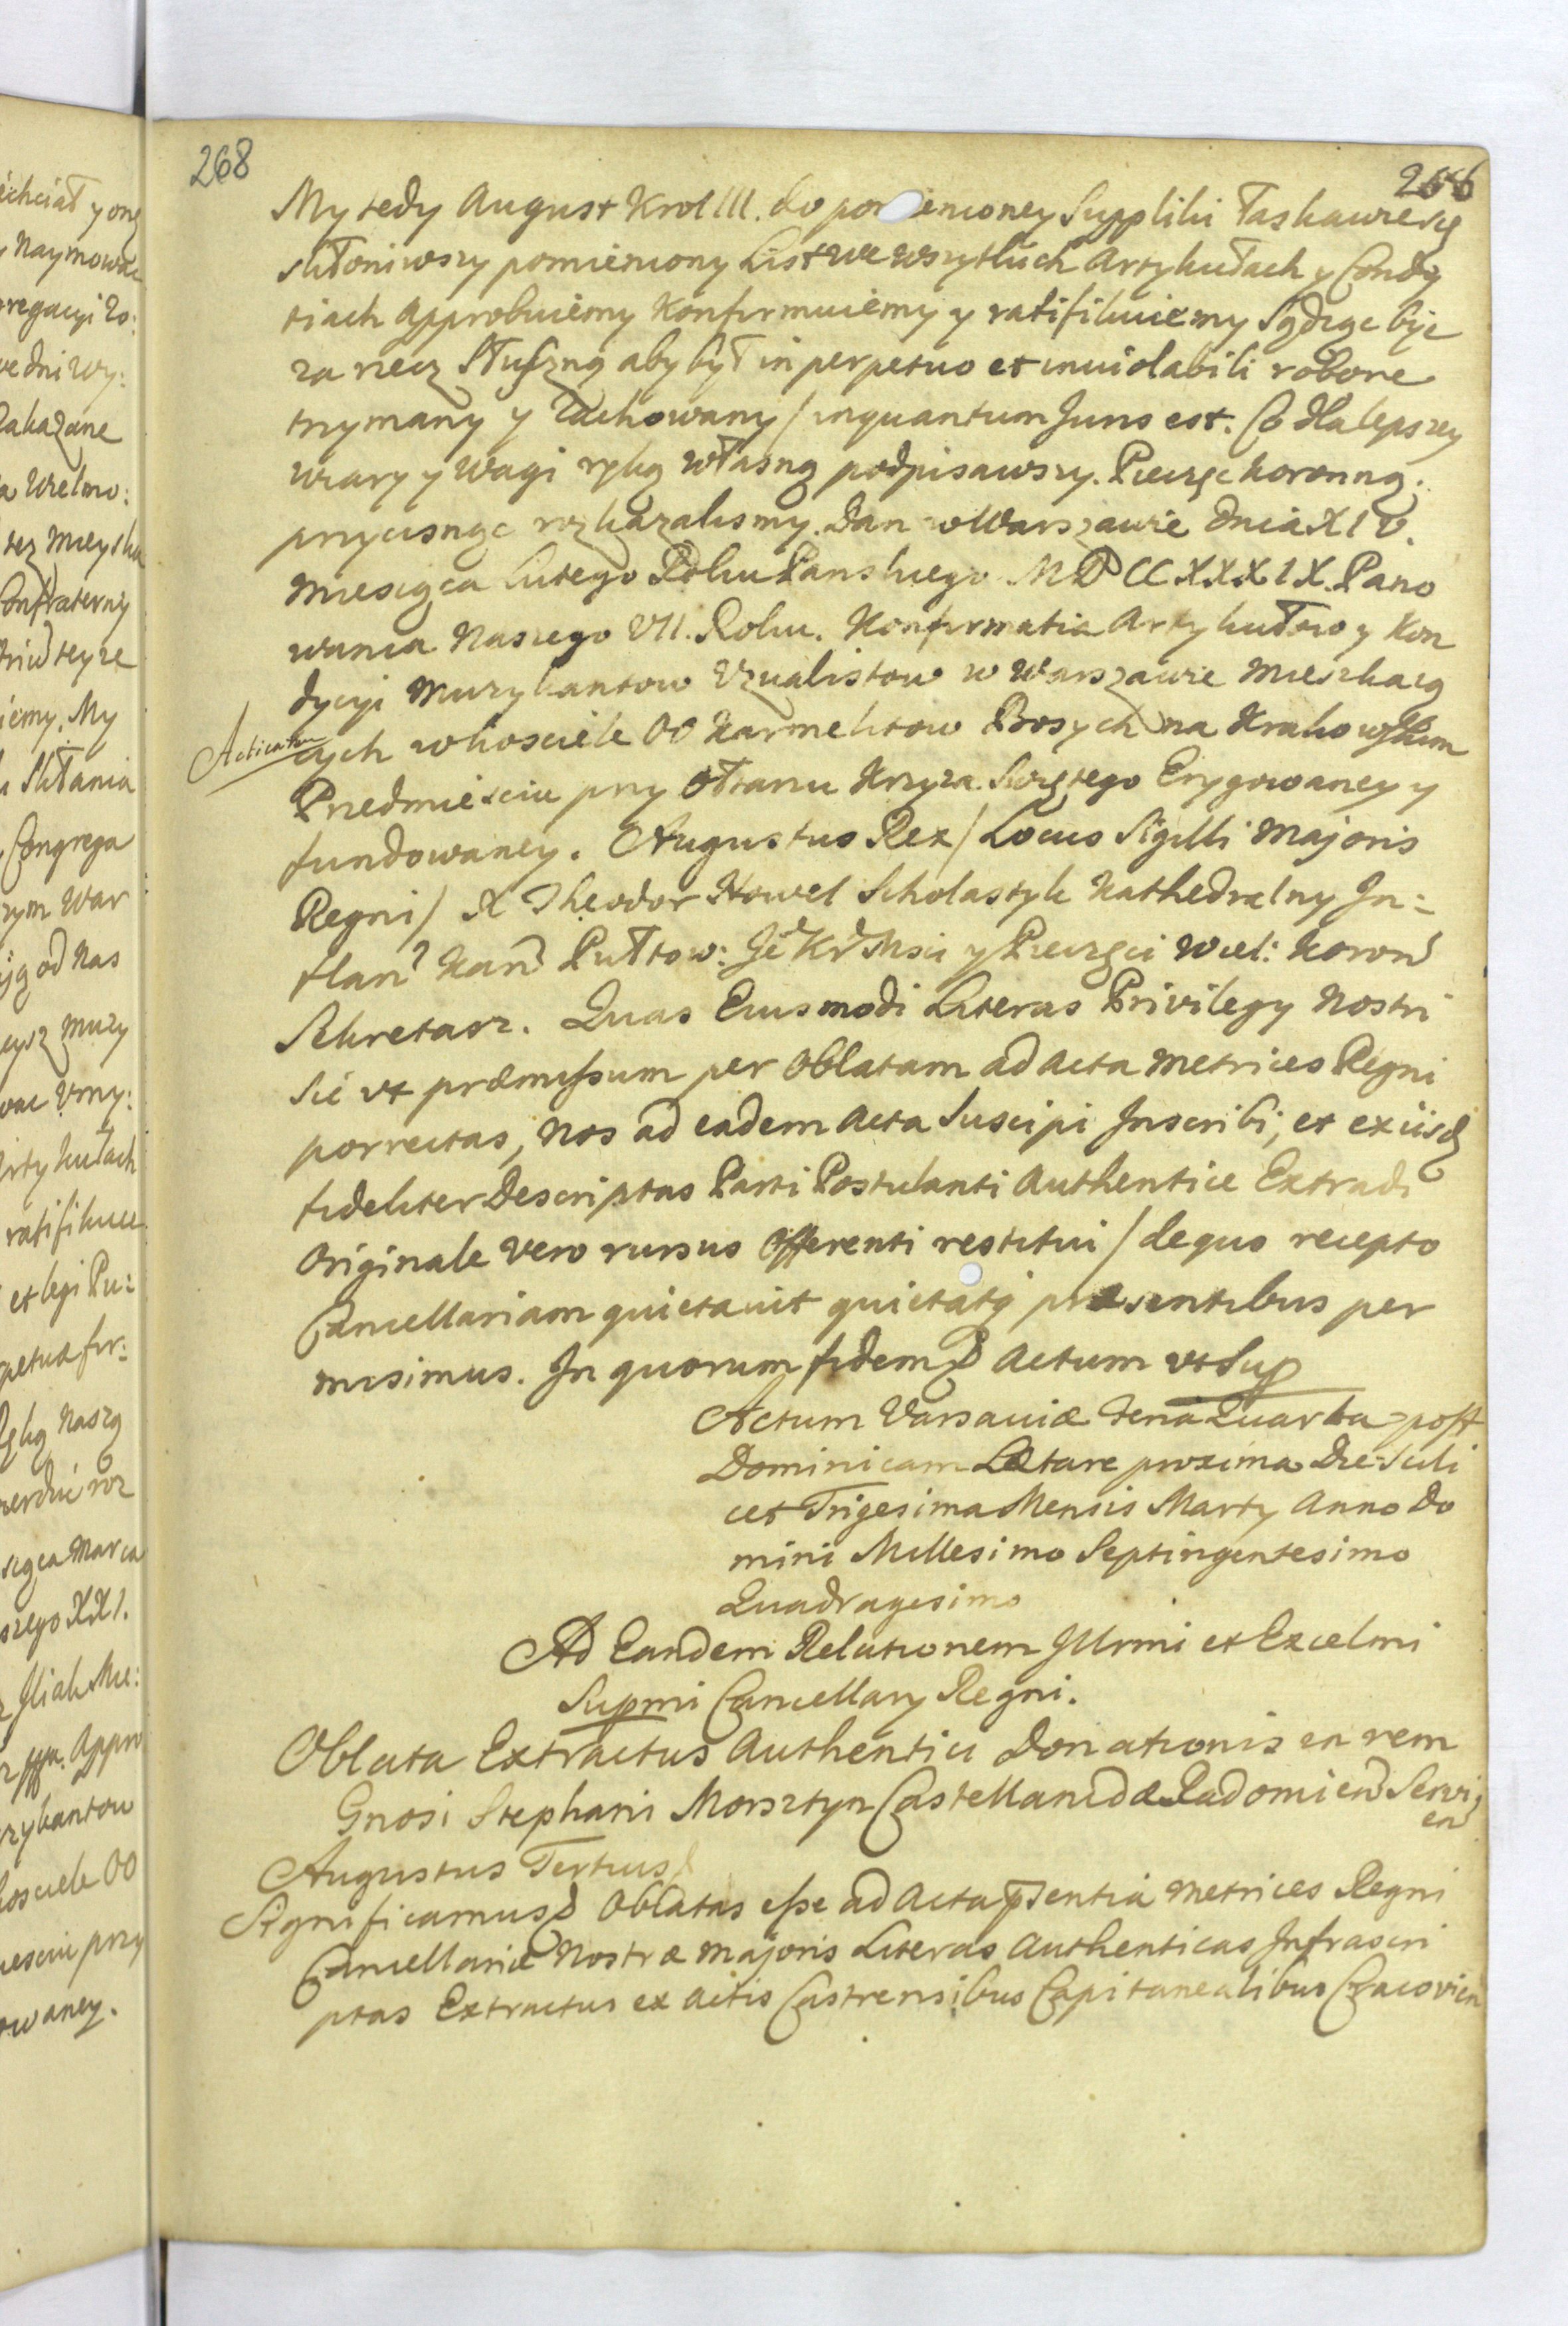 268
266
My tedy August Krol III. do pomienioney Suppliki Łaskawie się
skłoniwszy pomieniony List we wszytkich Artykułach y Condy
tiach Approbuiemy Konfirmuiemy y ratifikuiemy Sądząc byc
za rzecz Słuszną aby był in perpetuo et inviolabili robore
trzymany y zachowany / inquantum Juris est. Co dla lepszey
wiary y wagi ręką własną podpisawszy. Pieczęc koronną.
przycisnąc rozkazalismy. Dan w Warszawie dnia XIV.
Miesiąca Lutego Roku Panskiego MDCCXXXIX. Pano
wania Naszego VII. Roku. Konfirmatia Artykułow y Kon
dycyi Muzykantow Uzualistow w Warszawie Mieszkaią
Acticatum
cych w kosciele OO Karmelitow Bosych na Krakowskim
Przedmiesciu przy Ołtarzu Krzyza Swiętego Erygowaney y
fundowaney. Augustus Rex / Locus Sigilli Majoris
Regni / X Theodor Howel Scholastyk Kathedralny In:
flan Kan Pułtow: Je Kr Msci y Pieczęci Wiel: Koron
Sekretarz. Quas Eiusmodi Literas Privilegy Nostri
Sic ut præmissum per Oblatam ad Acta Metrices Regni
porrectas, Nos ad eadem Acta Suscipi Inscribi, et ex iisd
fideliter Descriptas Parti Postulanti Authentice Extradi
Originale vero rursus Offerenti restitui / de quo recepto
Cancellariam quietavit quietatq præsentibus per
misimus. In quorum fidem Actum ut Sup
Actum Varsaviæ Feria Quarta post
Dominicam Lætare proxima Die Scili
cet Trigesima Mensis Marty Anno Do
mini Millesimo Septingentesimo
Quadragesimo
Ad Eandem Relationem Illrmi et Excelmi
Supmi Cancellary Regni.
Oblata Extractus Authentici Donationis in rem
Gnosi Stephani Morsztyn Castellanidæ Radomien Servi
en
Augustus Tertius
Significamus Oblatas esse ad Acta pentia Metrices Regni
Cancellariæ Nostræ Majoris Literas Authenticas Infrascri
ptas Extractus ex Actis Castrensibus Capitanealibus Cracovien